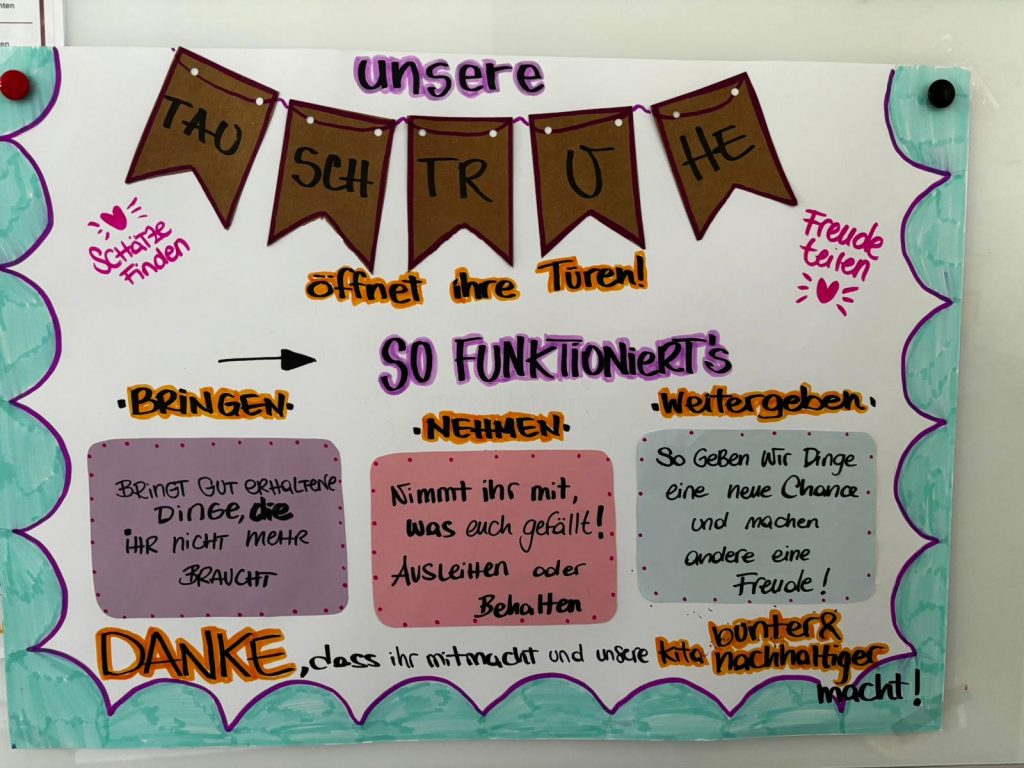 unsere
TAU SCH TR U HE
SCHÄTZE
Finden
Freude
teilen
öffnet ihre Türen!
SO FUNKTIONiERT's
·BRiNGEN·
·NEHMEN·
·Weitergeben·
BRINGT GUT ERHALTENE
DINGE, die
iHR NICHT MEHR
BRAUCHT
Nimmt ihr mit,
was euch gefällt!
AUSLEIHEN oder
Behalten
SO GEBEN WIR DINGE
eine neue Chance
und machen
andere eine
Freude!
DANKE, dass ihr mitmacht und unsere kita bunter &
nachhaltiger
macht!